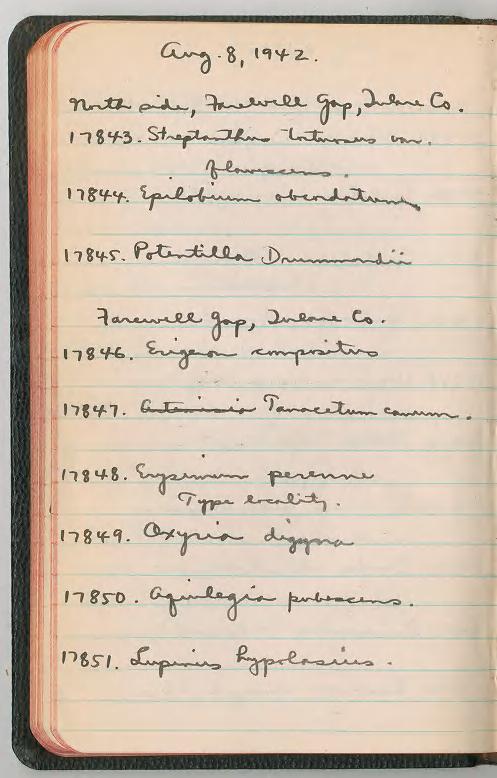 Aug. 8, 1942.
North side, Farewell Gap, Tulare Co.
17843. Streptanthus tortuosus var.
flavescens.
17844. Epilobium obcordatum
17845. Potentilla Drummondii
Farewell Gap, Tulare Co.
17846. Erigeron compositus
17847. Artemisia Tanacetum canum.
17848. Erysimum perenne
Type locality.
17849. Oxyria digyna
17850. Aquilegia pubescens.
17851. Lupinus hypolasius.